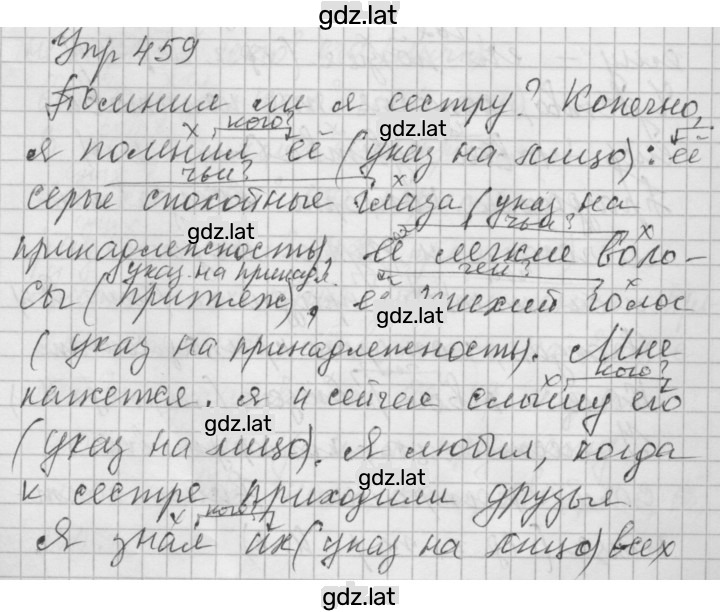 gdz.lat
Упр 459
Помнил ли я сестру? Конечно,
кого?
gdz.lat
я помнил её (указ на лицо): её
чьи?
серые спокойные глаза (указ на
gdz.lat
чьи?
принадлежность), её легкие воло-
указ. на принадл. чей?
сы (притяж), её тихий голос
gdz.lat
(указ на принадлежность). Мне
кого?
кажется. я и сейчас слышу его
gdz.lat
(указ на лицо). Я любил, когда
gdz.lat
к сестре приходили друзья.
кого?
Я знал их (указ на лицо) всех
gdz.lat